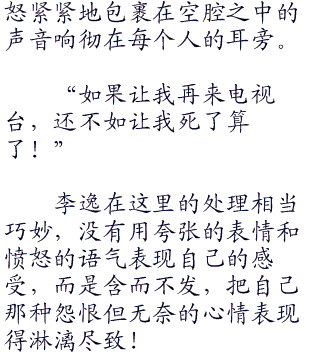 怒紧紧地包裹在空腔之中的
声音响彻在每个人的耳旁。
“如果让我再来电视
台，还不如让我死了算
了！”
李逸在这里的处理相当
巧妙，没有用夸张的表情和
愤怒的语气表现自己的感
受，而是含而不发，把自己
那种怨恨但无奈的心情表现
得淋漓尽致！